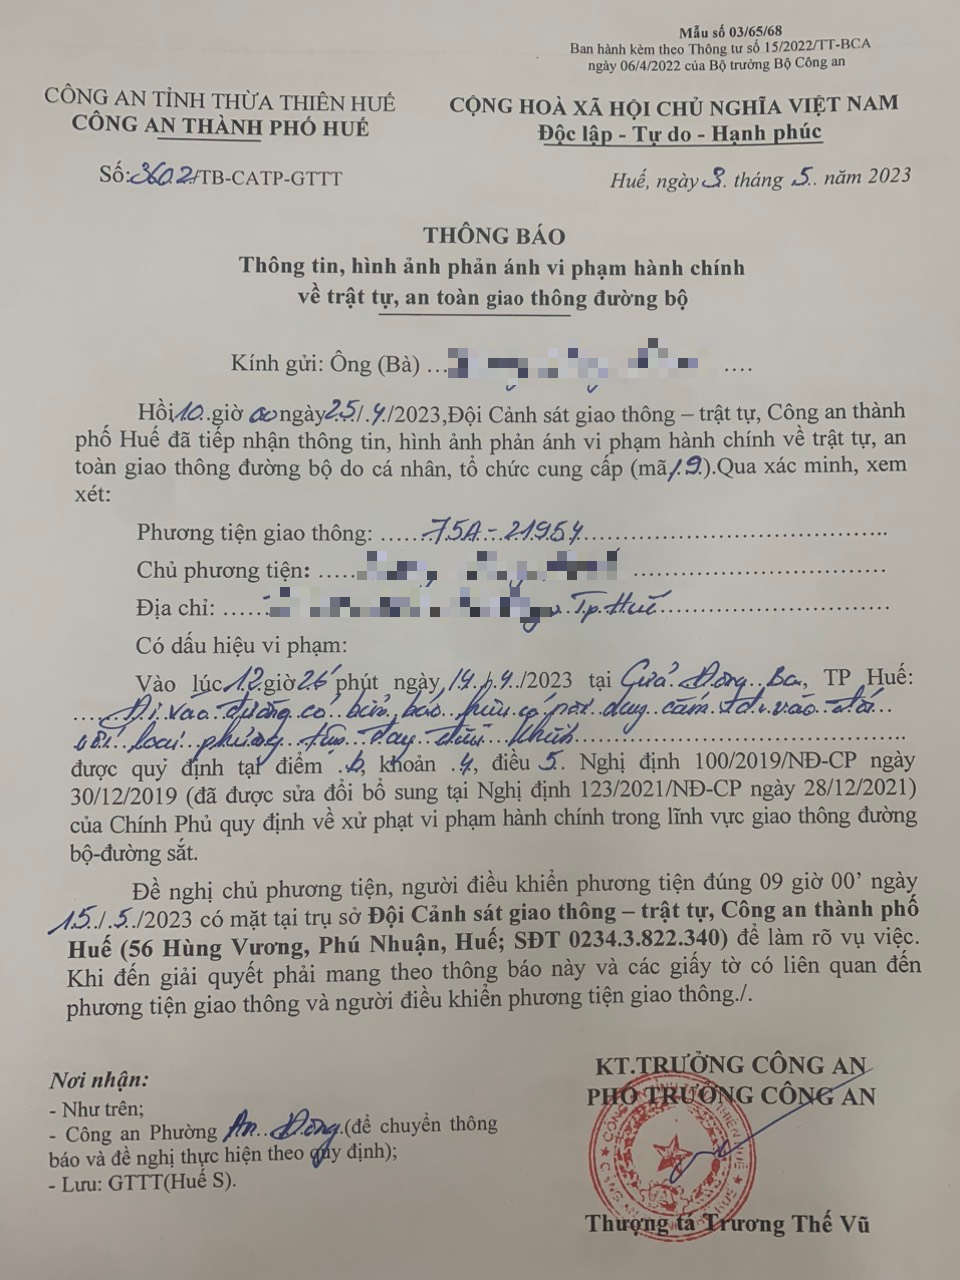 Mẫu số 03/65/68
Ban hành kèm theo Thông tư số 15/2022/TT-BCA
ngày 06/4/2022 của Bộ trưởng Bộ Công an
CÔNG AN TỈNH THỪA THIÊN HUẾ
CÔNG AN THÀNH PHỐ HUẾ
CỘNG HOÀ XÃ HỘI CHỦ NGHĨA VIỆT NAM
Độc lập - Tự do - Hạnh phúc
Số:3602/TB-CATP-GTTT
Huế, ngày 3. tháng 5.. năm 2023
THÔNG BÁO
Thông tin, hình ảnh phản ánh vi phạm hành chính
về trật tự, an toàn giao thông đường bộ
Kính gửi: Ông (Bà) ... ....
Hồi 10..giờ 00 ngày 25/.4./2023,Đội Cảnh sát giao thông – trật tự, Công an thành
phố Huế đã tiếp nhận thông tin, hình ảnh phản ánh vi phạm hành chính về trật tự, an
toàn giao thông đường bộ do cá nhân, tổ chức cung cấp (mã 19.).Qua xác minh, xem
xét:
Phương tiện giao thông: ......75A-21954......
Chủ phương tiện: ......
Địa chỉ: ...... Tp. Huế......
Có dấu hiệu vi phạm:
Vào lúc 12 giờ 26 phút, ngày 14./.4./2023 tại Cửa Đông Ba, TP Huế:
....Đi vào đường có biển báo hiệu có nội dung cấm đi vào đối
với loại phương tiện đang điều khiển......
được quy định tại điểm .b, khoản .4, điều 5.. Nghị định 100/2019/NĐ-CP ngày
30/12/2019 (đã được sửa đổi bổ sung tại Nghị định 123/2021/NĐ-CP ngày 28/12/2021)
của Chính Phủ quy định về xử phạt vi phạm hành chính trong lĩnh vực giao thông đường
bộ-đường sắt.
Đề nghị chủ phương tiện, người điều khiển phương tiện đúng 09 giờ 00' ngày
15./.5./2023 có mặt tại trụ sở Đội Cảnh sát giao thông – trật tự, Công an thành phố
Huế (56 Hùng Vương, Phú Nhuận, Huế; SĐT 0234.3.822.340) để làm rõ vụ việc.
Khi đến giải quyết phải mang theo thông báo này và các giấy tờ có liên quan đến
phương tiện giao thông và người điều khiển phương tiện giao thông./.
KT.TRƯỞNG CÔNG AN
PHÓ TRƯỞNG CÔNG AN
Nơi nhận:
- Như trên;
- Công an Phường An Đông.(để chuyển thông
báo và đề nghị thực hiện theo quy định);
- Lưu: GTTT(Huế S).
Thượng tá Trương Thế Vũ